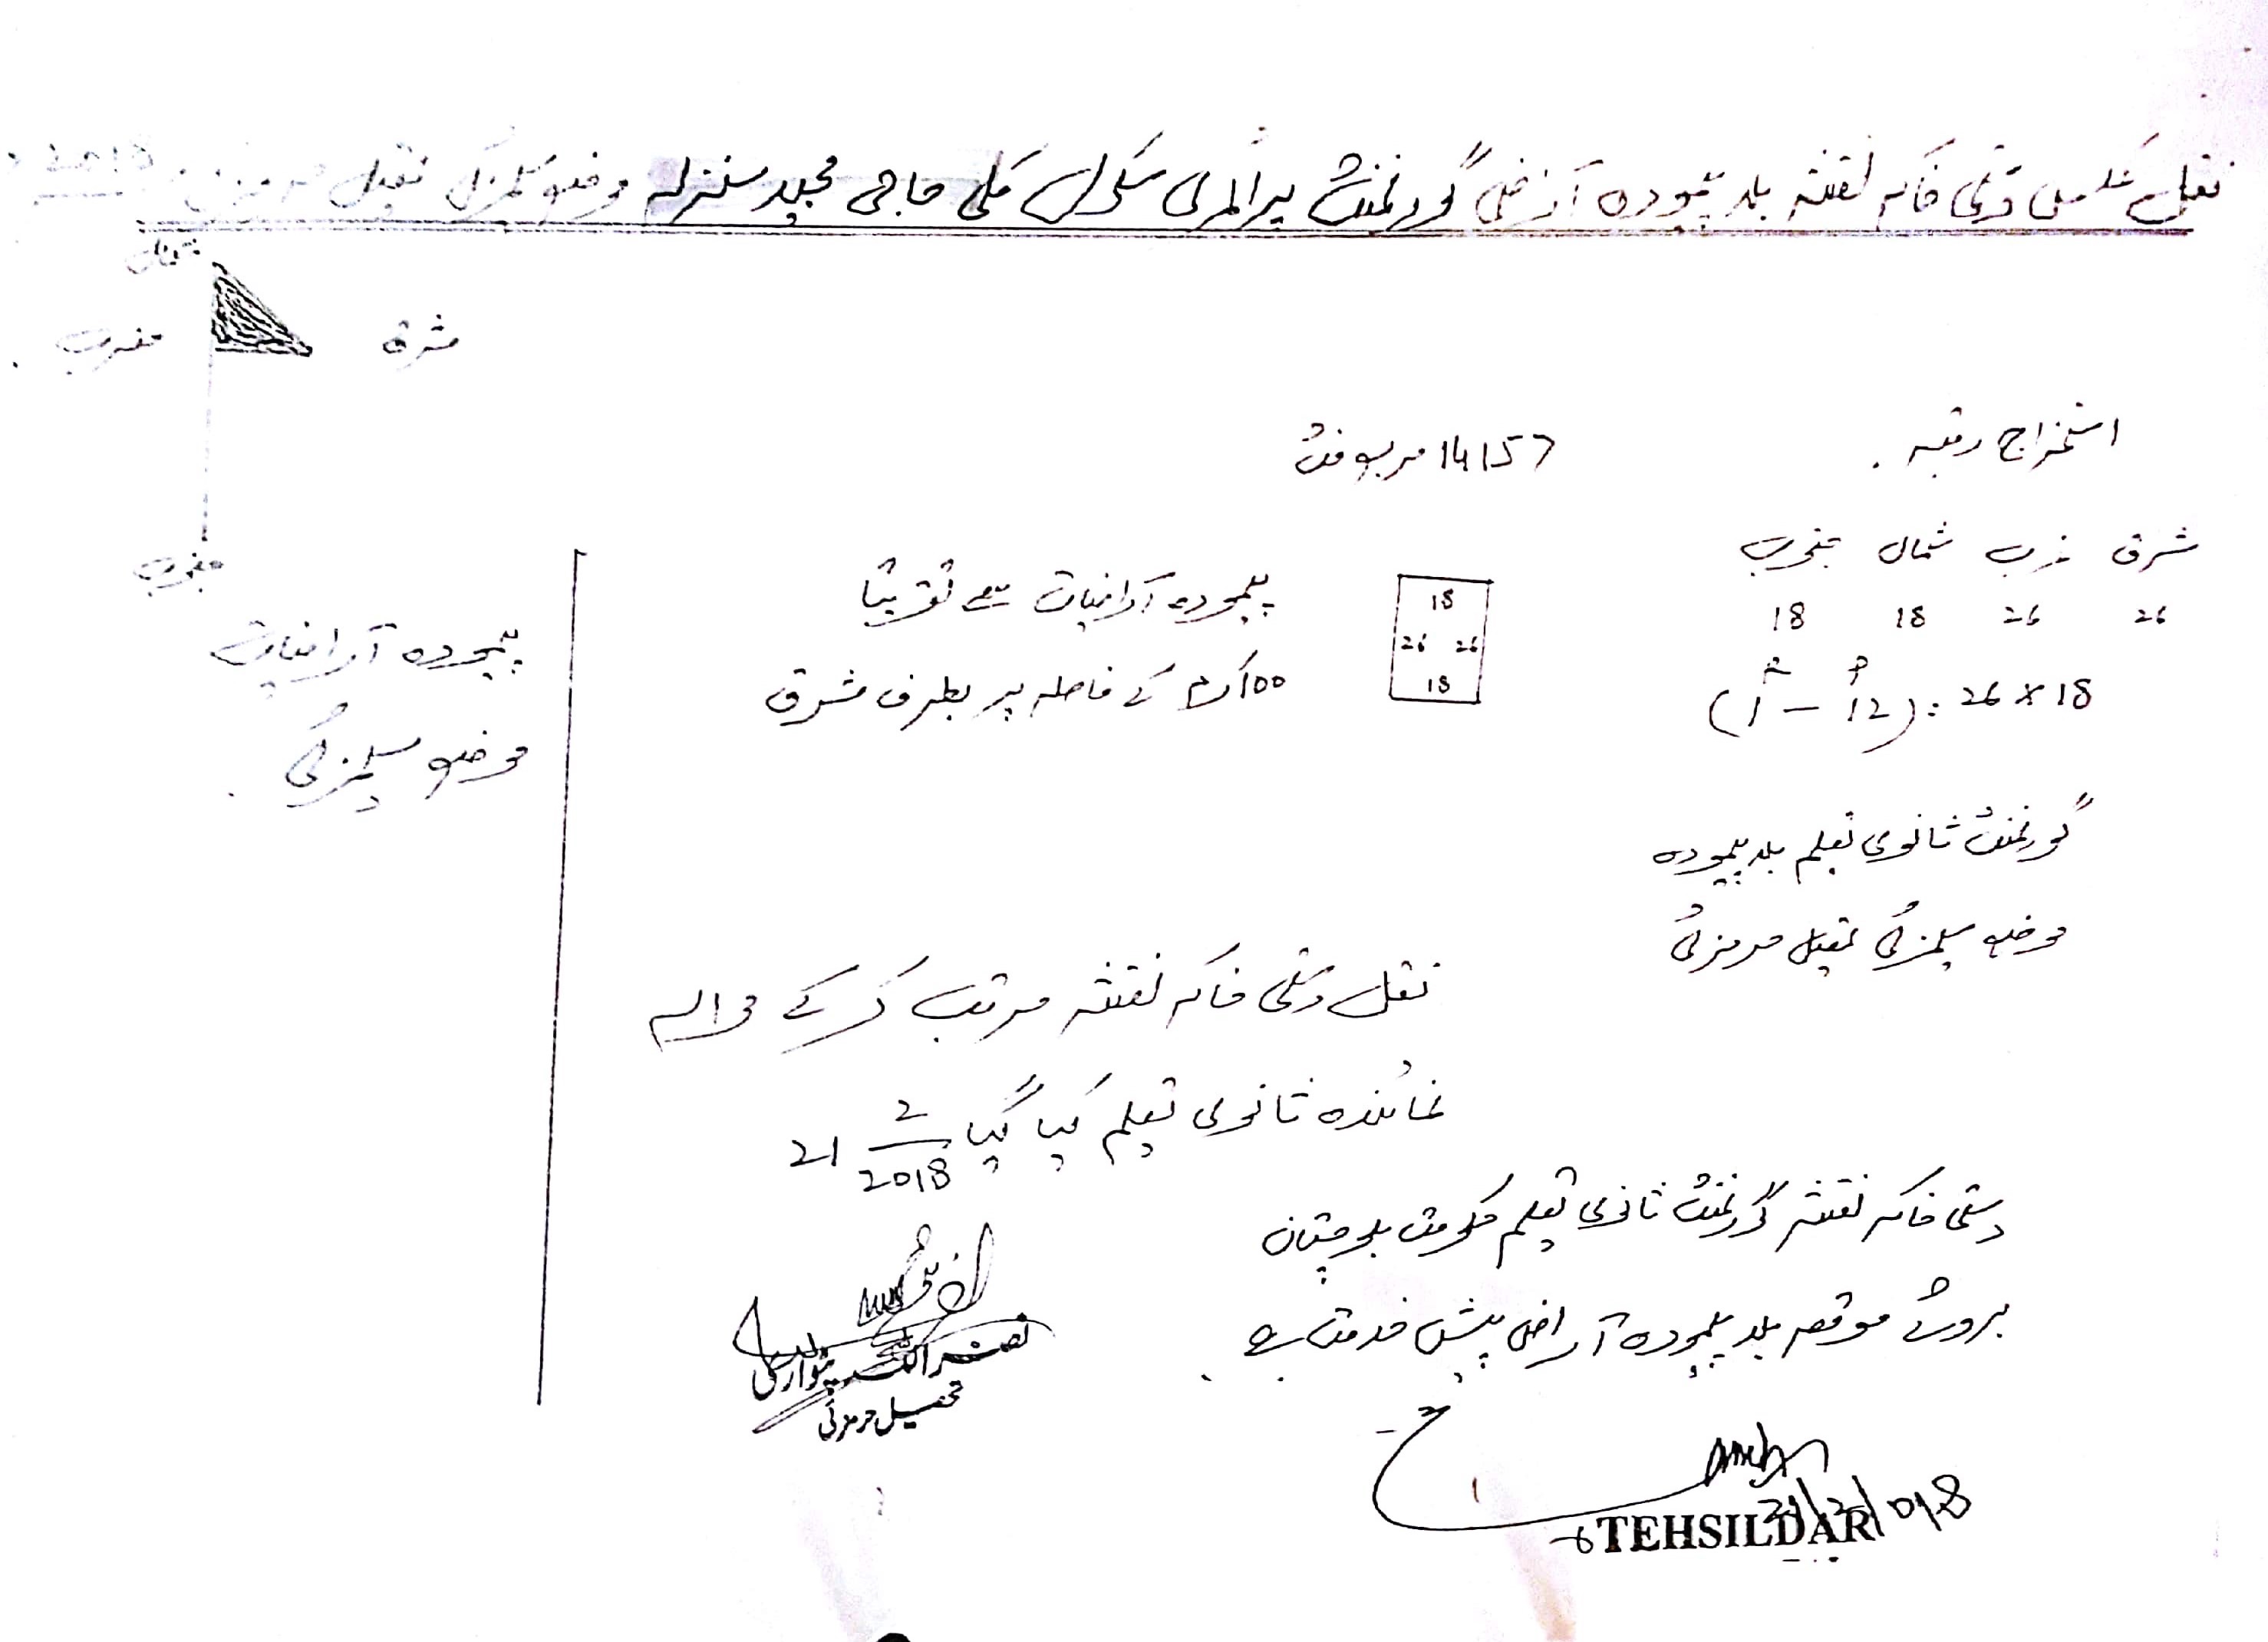 نقل عکس دستی خاکہ نقشہ بلد پیمودہ آراضی گورنمنٹ پرائمری سکول کلی حاجی مجید سلنزلہ موضع سلمزئی
شمال
مغرب مشرق
جنوب
استخراج رقبہ
14157 مربع فٹ
شرق غرب شمال جنوب
26 26 18 18
26 x 18 :
18
26 26
18
پیمودہ آراضیات سے تقریبًا
100 کرم کے فاصلہ پر بطرف مشرق
پیمودہ آراضیات
موضع سلمزئی
گورنمنٹ ثانوی تعلیم بلد پیمودہ
موضع سلمزئی تحصیل حرمزئی
نقل دستی خاکہ نقشہ مرتب کر کے حوالہ
نمائندہ ثانوی تعلیم کیا گیا
21 2/2018
دستی خاکہ نقشہ گورنمنٹ ثانوی تعلیم حکومت بلوچستان
بروئے موقعہ بلد پیمودہ آراضی پیش خدمت ہے
پٹواری
تحصیل حرمزئی
21/2/018
TEHSILDAR